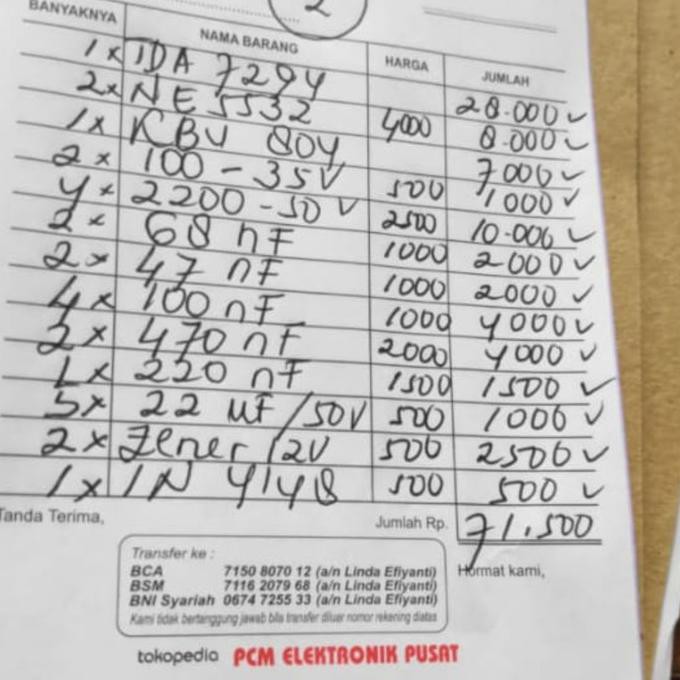 BANYAKNYA NAMA BARANG HARGA JUMLAH
1x TDA 7294 28.000 ✓
2x NE 5532 4000 8.000 ✓
1x KBU 804 7000 ✓
2x 100 - 35V 500 1000 ✓
4x 2200 - 50V 2500 10.000 ✓
2x 68 nF 1000 2000 ✓
2x 47 nF 1000 2000 ✓
4x 100 nF 1000 4000 ✓
2x 470 nF 2000 4000 ✓
1x 220 nF 1500 1500 ✓
5x 22 uf/50V 500 1000 ✓
2x Zener 12V 500 2500 ✓
1x IN 4148 500 500 ✓
Tanda Terima, Jumlah Rp. 71.500
Hormat kami,
Transfer ke :
BCA 7150 8070 12 (a/n Linda Efiyanti)
BSM 7116 2079 68 (a/n Linda Efiyanti)
BNI Syariah 0674 7255 33 (a/n Linda Efiyanti)
Kami tidak bertanggung jawab bila transfer diluar nomor rekening diatas
tokopedia PCM ELEKTRONIK PUSAT